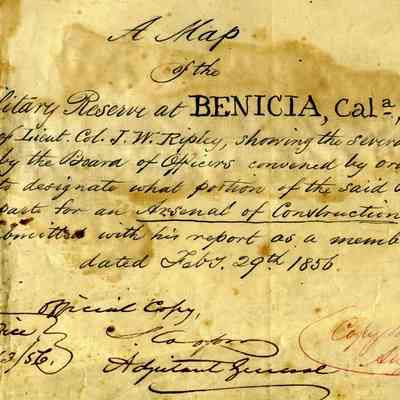 A Map
of the
litary Reserve at BENICIA, Calª,
of Lieut. Col. J. W. Ripley, showing the severa
by the Board of Officers convened by ord
to designate what portion of the said
parts for an Arsenal of Construction
ubmitted with his report as a membe
dated Feby. 29th 1856
Official Copy,
fice
3/56.
S. Cooper
Adjutant General
Copy